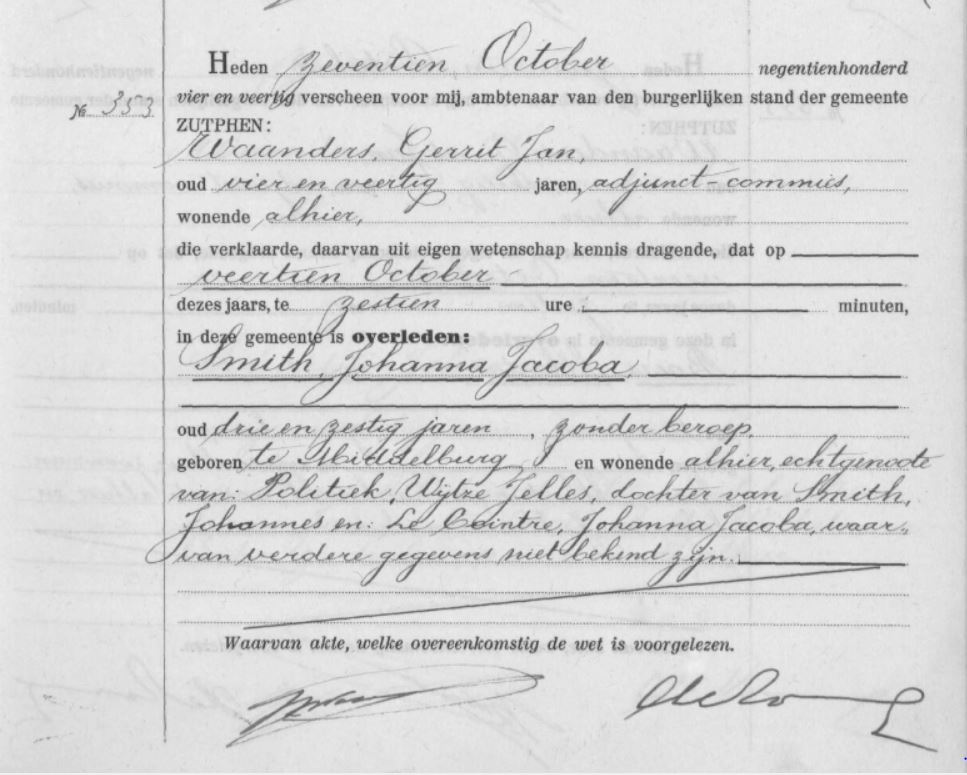 Heden zeventien October negentienhonderd
№ 353 vier en veertig verscheen voor mij, ambtenaar van den burgerlijken stand der gemeente
ZUTPHEN:
Waanders, Gerrit Jan,
oud vier en veertig jaren, adjunct-commies,
wonende alhier,
die verklaarde, daarvan uit eigen wetenschap kennis dragende, dat op
veertien October
dezes jaars, te zestien ure minuten,
in deze gemeente is overleden:
Smith, Johanna Jacoba
oud drie en zestig jaren, zonder beroep,
geboren te Middelburg en wonende alhier, echtgenoote
van: Politiek, Wijtze Jelles, dochter van Smith,
Johannes en: Le Cointre, Johanna Jacoba, waar„
van verdere gegevens niet bekend zijn.
Waarvan akte, welke overeenkomstig de wet is voorgelezen.